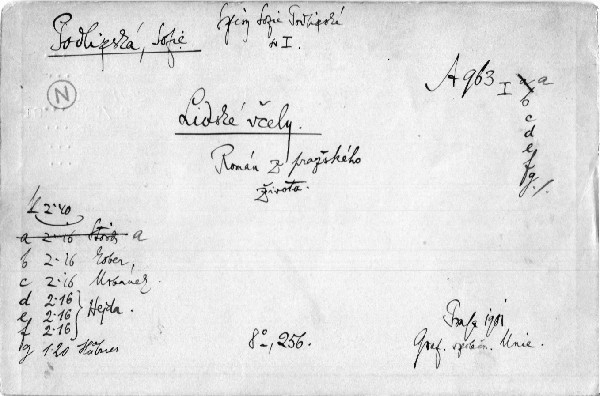 Podlipská, Sofie
Spisy Sofie Podlipské
I.
A 963 I a a
b
c
d
e
f
g
N
Lidské včely.
Román z pražského
života.
2·40
a 2·16 a
b 2·16
c 2·16 Urbánek.
d 2·16
e 2·16 Hejda.
f 2·16
g 1·20
8°, 256.
Praha 1901
Graf. Unie.